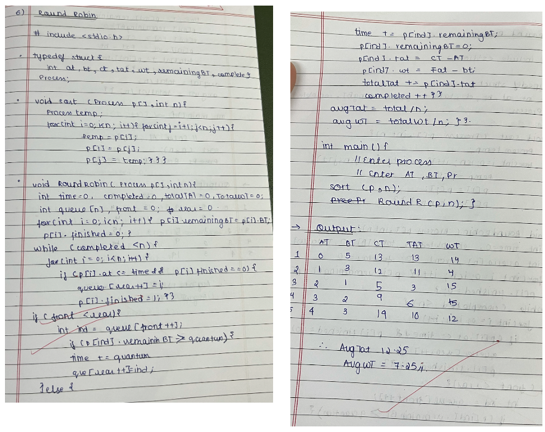 6) Round Robin
# include <stdio.h>
typedef struct {
int at, bt, ct, tat, wt, remainingBT, complete;}
Process;
void sort (Process p[], int n){
Process temp;
for(int i=0; i<n; i++){ for(int j=i+1; j<n; j++){
temp = p[i];
p[i] = p[j];
p[j] = temp; } } }
void RoundRobin ( Process p[], int n){
int time=0, completed=0, total TAT=0, TotalWT=0;
int queue [n], front = 0; rear = 0
for(int i=0; i<n; i++) { p[i].remainingBT = p[i].BT;
p[i].finished = 0; }
while (completed <n) {
for(int i=0; i<n; i++){
if (p[i].at <= time && p[i].finished ==0) {
queue [rear++] = i;
p[i].finished = 1; } }
if (front < rear) {
int ind = queue [front++];
if (p[ind].remainBT > quantum) {
time += quantum
que[rear++] = ind;
} else {
time += p[ind].remainingBT;
p[ind].remainingBT=0;
p[ind].tat = CT - AT
p[ind].wt = tat - bt;
totalTat += p[ind].tat
completed ++ } }
avgTat = total /n;
avg WT = totalWT /n; } }
int main () {
// Enter process
// Enter AT, BT, Pr
sort (p,n);
Round R (p,n); }
→ Output
AT BT CT TAT WT
1 0 5 13 13 14
2 1 3 12 11 4
3 2 1 5 3 15
4 3 2 9 6
5 4 3 14 10 12
∴ Avg Tat 12.25
Avg WT = 7.25